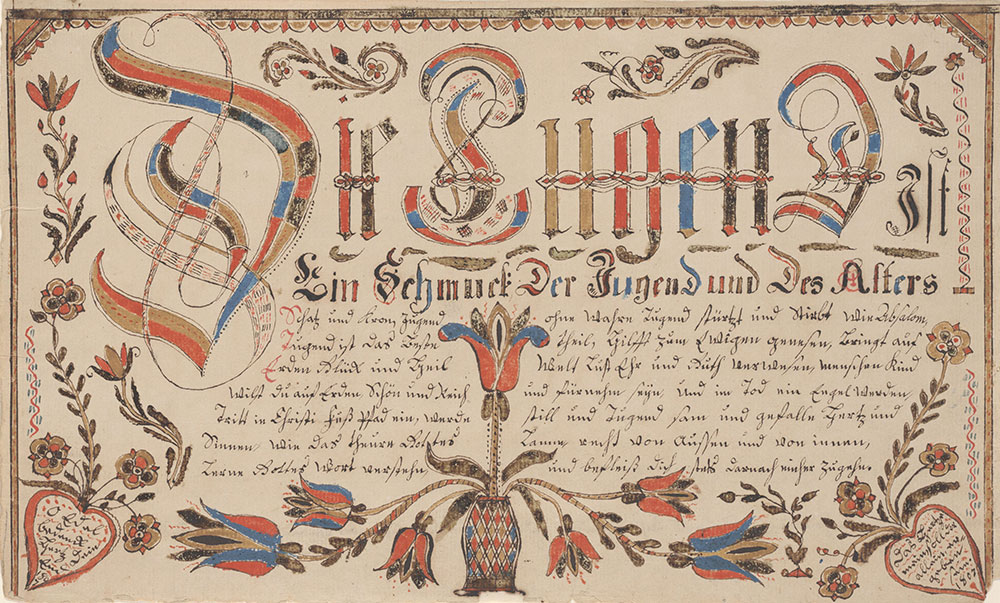 Die Tugend Ist
Ein Schmuck Der Jugend und Des Alters
Schatz und Kron Jugend ohne Wahre Tugend stürtzt und Stirbt wie Absalom,
Tugend ist das Beste theil, Hilfft zum Ewigen genesen, Bringt auf
Erden Glück und Heil Welt Lust Ehr und Guth verwesen, menschen Kind
wilst du auf Erden Schön und Reich und fürnehm seyn, und im Tod ein Engel werden
Tritt in Christi Pfad ein, werde still und Tugend sam und gefalle Hertz und
Sinnen, wie das theure Gottes Lamm, recht von Aussen und von innen,
Lerne Gottes Wort verstehn und befleiß dich stets darnach einher zugehn.
O
Hertz
Das Hertz